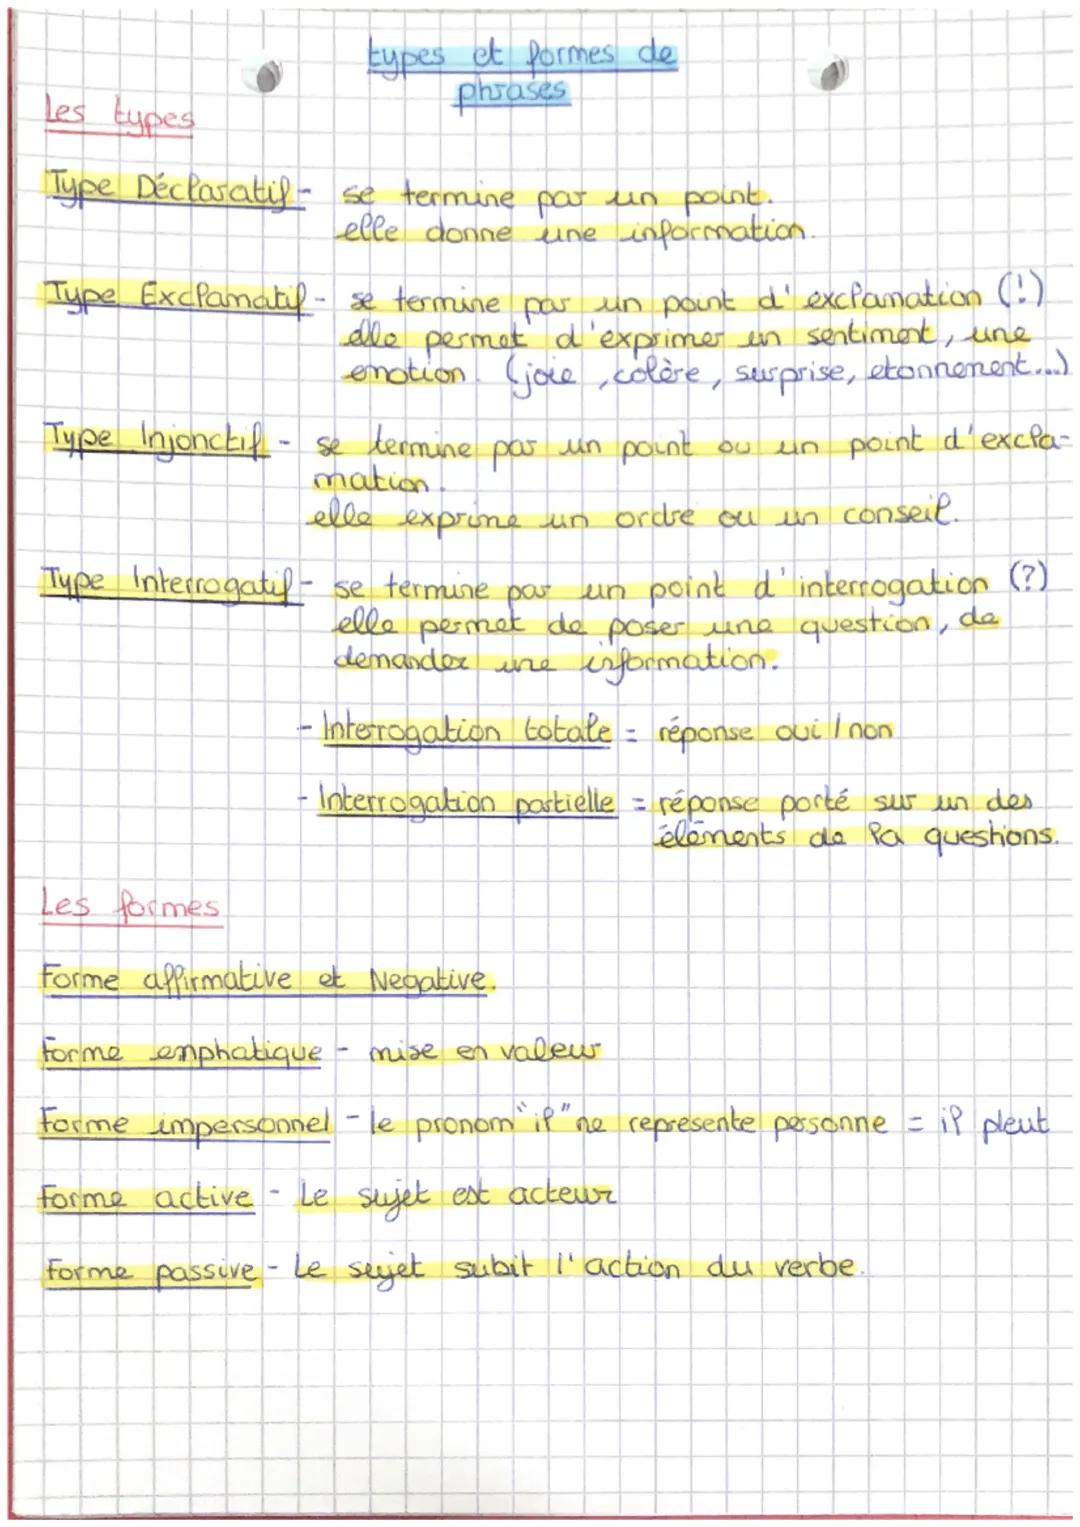 types et formes de
phrases
Les types
Type Déclaratif - se termine par un point.
elle donne une information.
Type Exclamatif - se termine par un point d'exclamation (!)
elle permet d'exprimer un sentiment, une
emotion. (joie, colère, surprise, etonnement...)
Type Injonctif - se termine par un point ou un point d'excla-
mation.
elle exprime un ordre ou un conseil.
Type Interrogatif - se termine par un point d'interrogation (?)
elle permet de poser une question, de
demander une information.
- Interrogation totale = réponse oui / non
- Interrogation partielle = réponse porté sur un des
éléments de la questions.
Les formes
Forme affirmative et Negative.
Forme emphatique - mise en valeur
Forme impersonnel - le pronom "il" ne represente personne = il pleut
Forme active - Le sujet est acteur
Forme passive - Le sujet subit l'action du verbe.